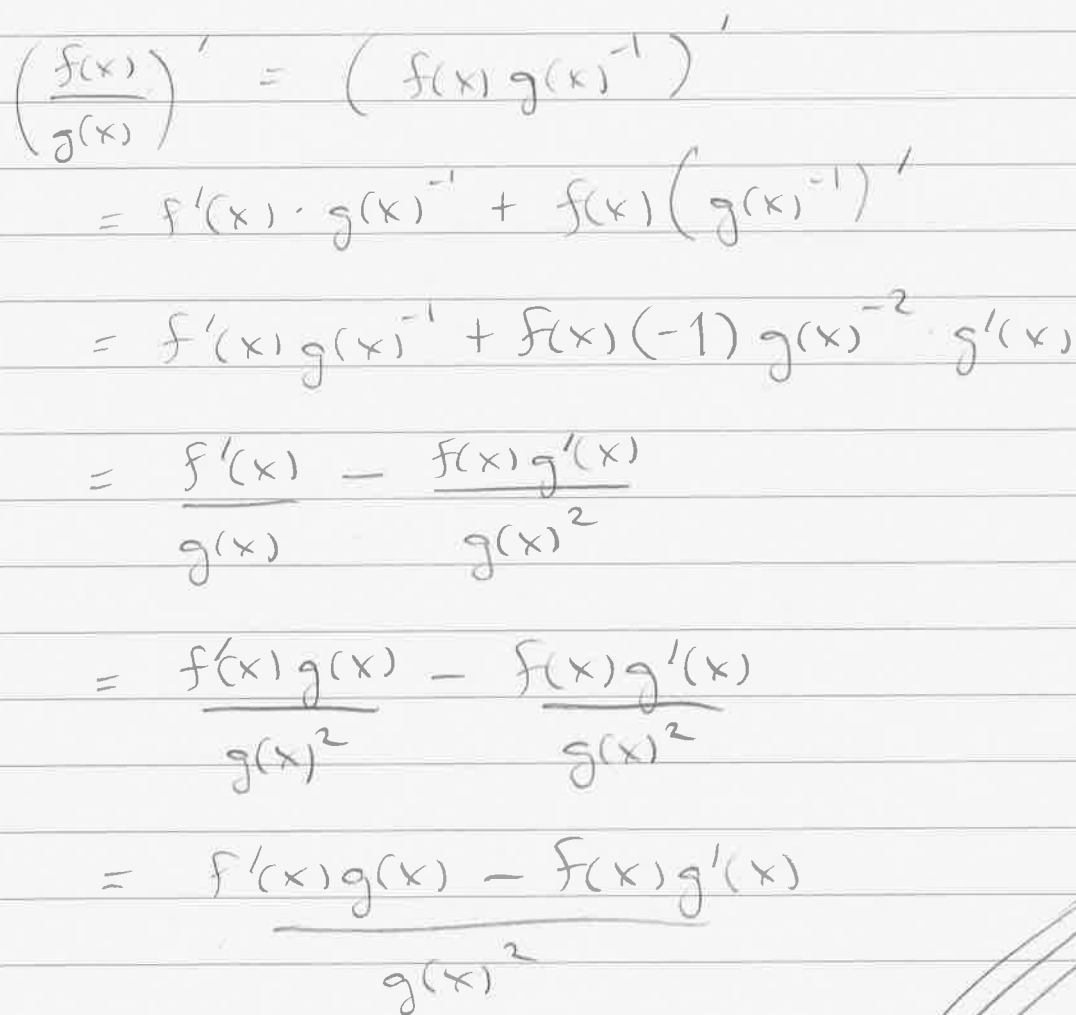 (f(x)/g(x))' = (f(x) g(x)⁻¹)'
= f'(x) · g(x)⁻¹ + f(x)(g(x)⁻¹)'
= f'(x) g(x)⁻¹ + f(x)(-1) g(x)⁻² · g'(x)
= f'(x)/g(x) - f(x)g'(x)/g(x)²
= f'(x)g(x)/g(x)² - f(x)g'(x)/g(x)²
= (f'(x)g(x) - f(x)g'(x))/g(x)²